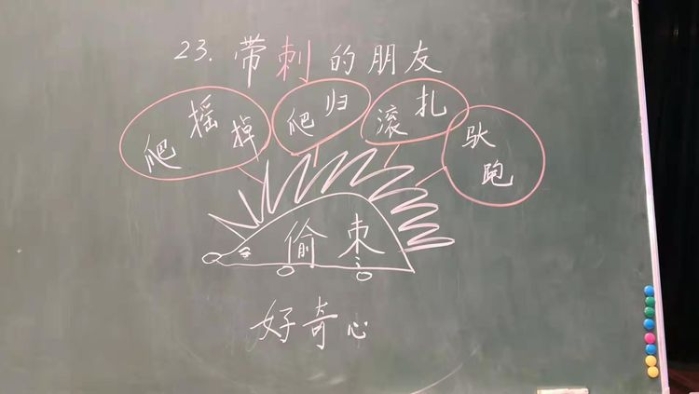 23. 带刺的朋友
爬摇掉
爬归
滚扎
驮跑
偷枣
好奇心